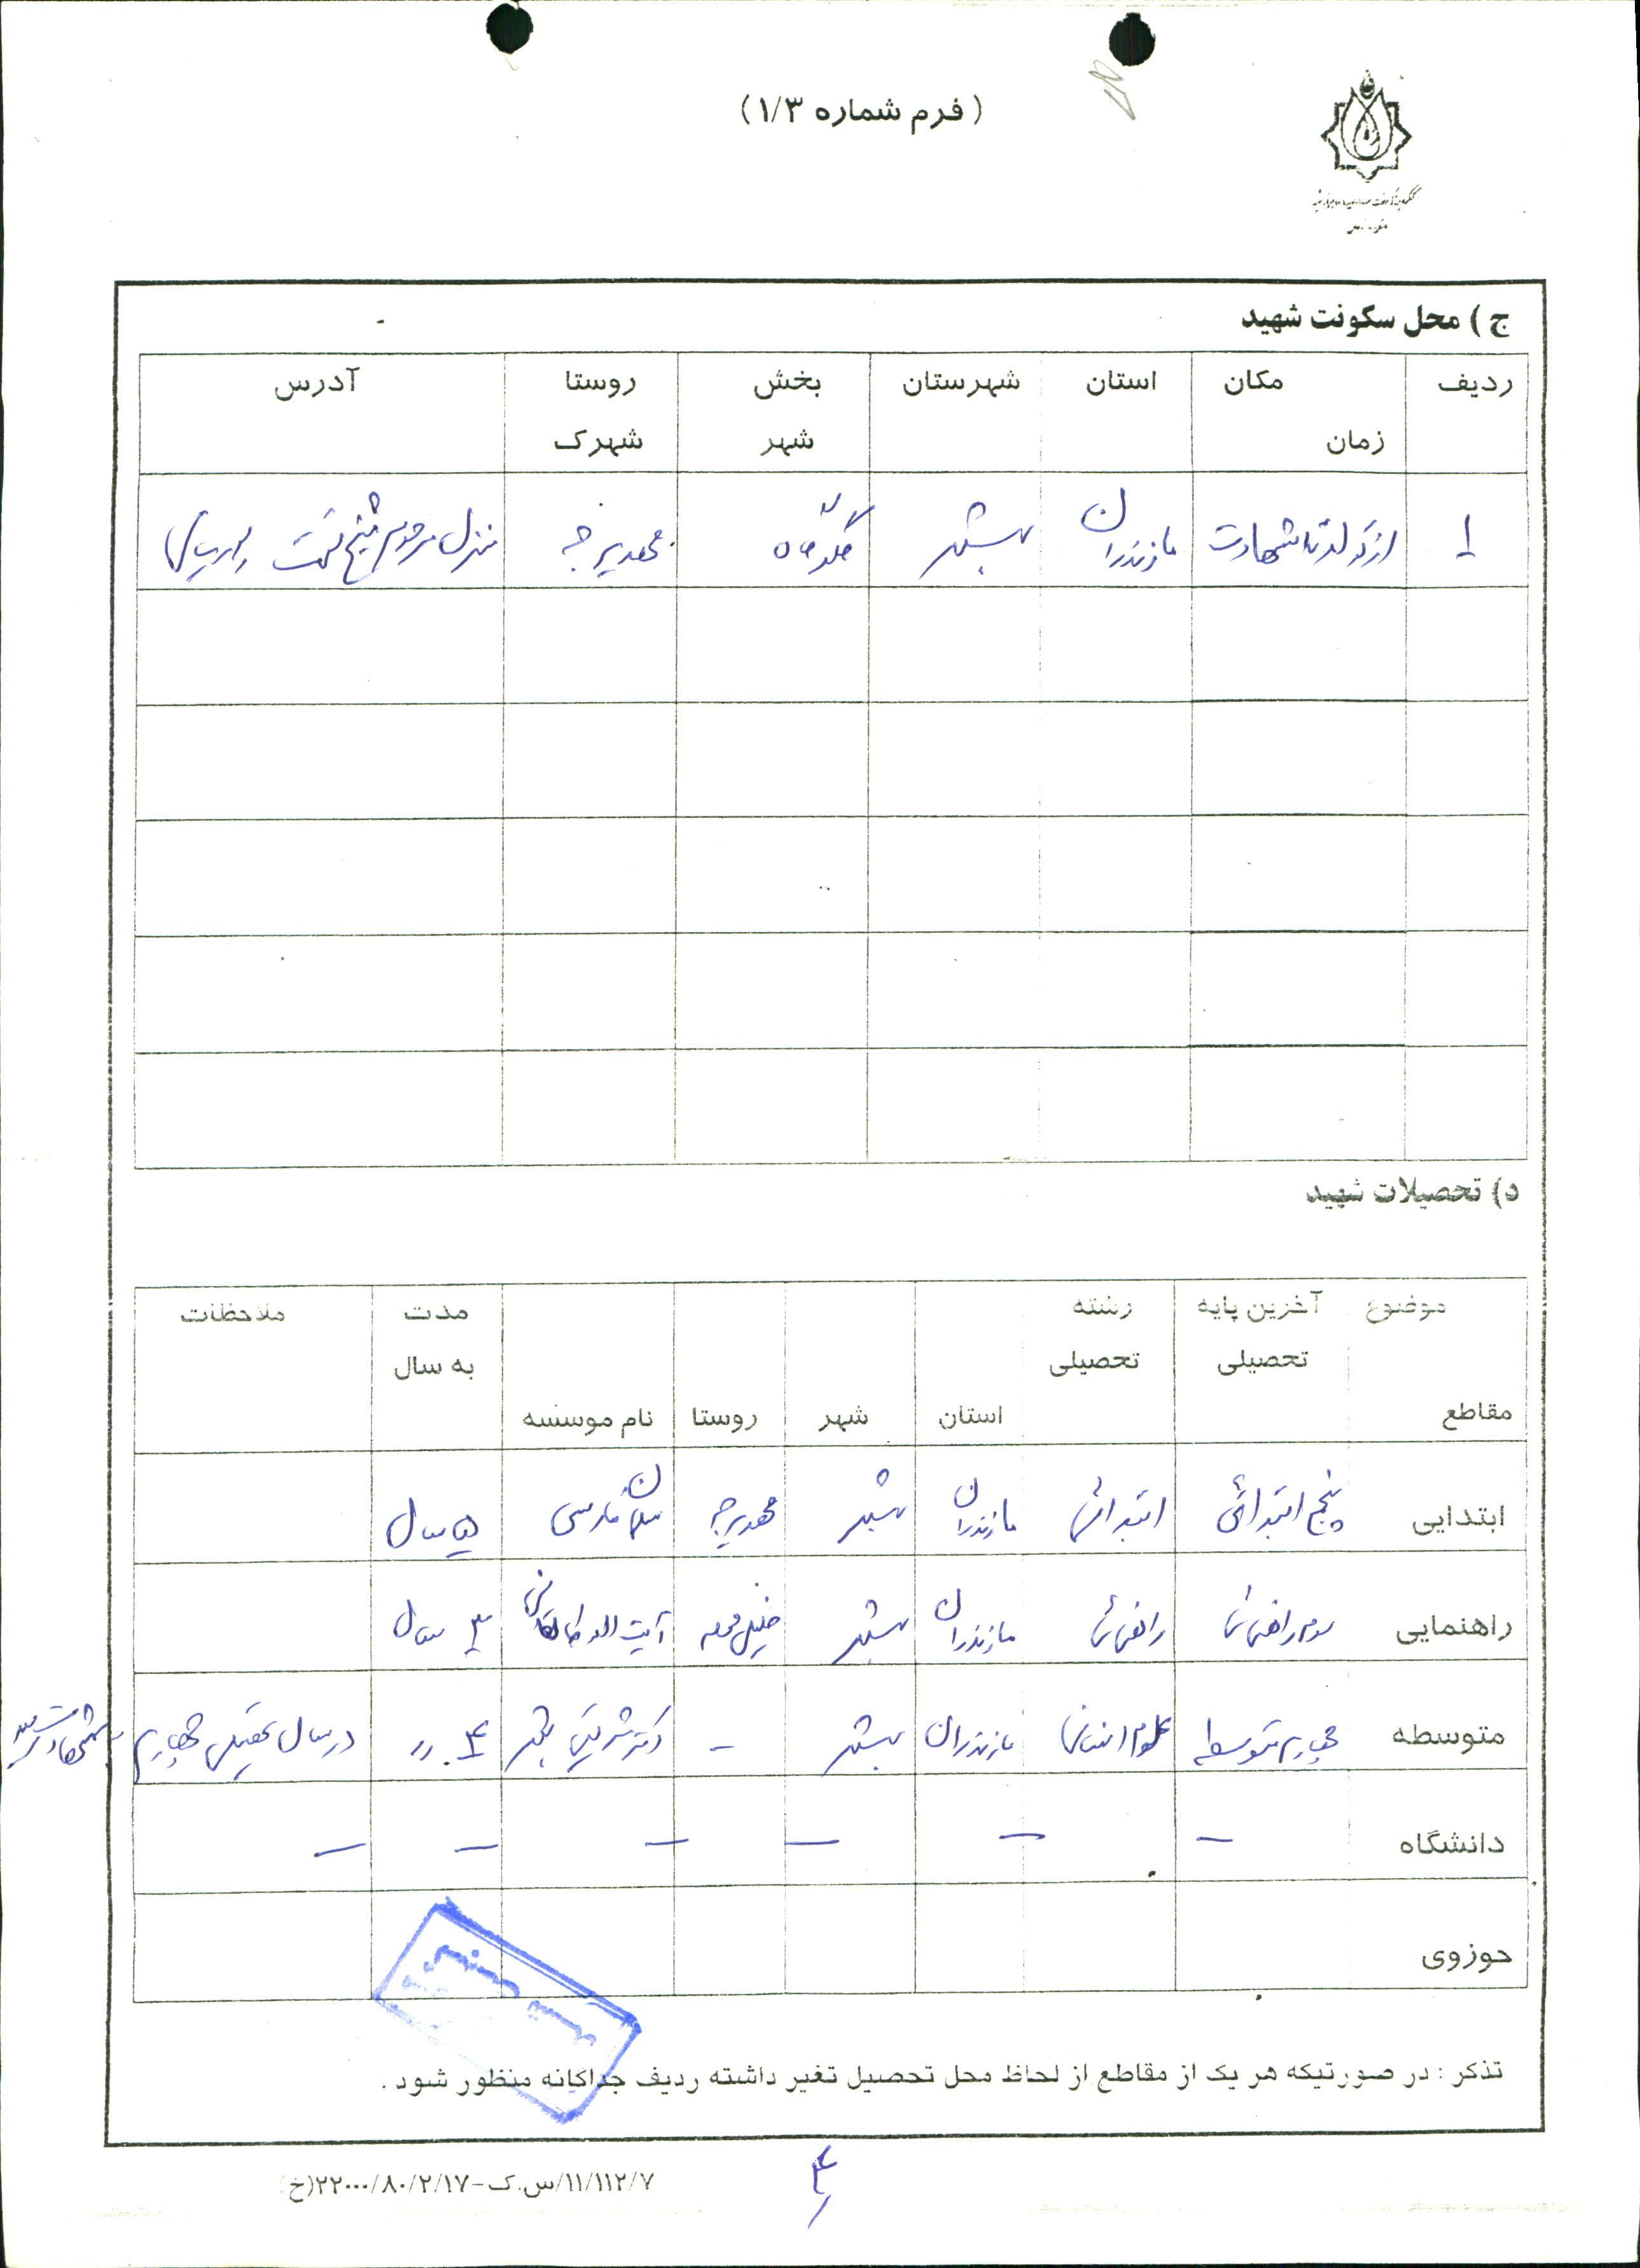 ( فرم شماره ۱/۳ )
ج ) محل سکونت شهید
ردیف مکان زمان استان شهرستان بخش شهر روستا شهرک آدرس
۱ از تولد تا شهادت مازندران بهشهر گلوگاه مهدیرجه منزل مرحوم شیخ نعمت
د) تحصیلات شهید
موضوع مقاطع آخرین پایه تحصیلی رشته تحصیلی استان شهر روستا نام موسسه مدت به سال ملاحظات
ابتدایی پنجم ابتدائی ابتدائی مازندران بهشهر مهدیرجه سلمان فارسی ۵ سال
راهنمایی سوم راهنمائی راهنمائی مازندران بهشهر خلیل محله آیت الله طالقانی ۳ سال
متوسطه چهارم متوسطه علوم انسانی مازندران بهشهر - دکتر شریعتی بهشهر ۴ 〃 در سال تحصیلی چهارم به شهادت رسید
دانشگاه - - - - - -
حوزوی
تذکر : در صورتیکه هر یک از مقاطع از لحاظ محل تحصیل تغیر داشته ردیف جداگانه منظور شود .
۴
۱۱/۱۱۲/۷/س.ک-۲۲۰۰۰/۸۰/۲/۱۷(خ)